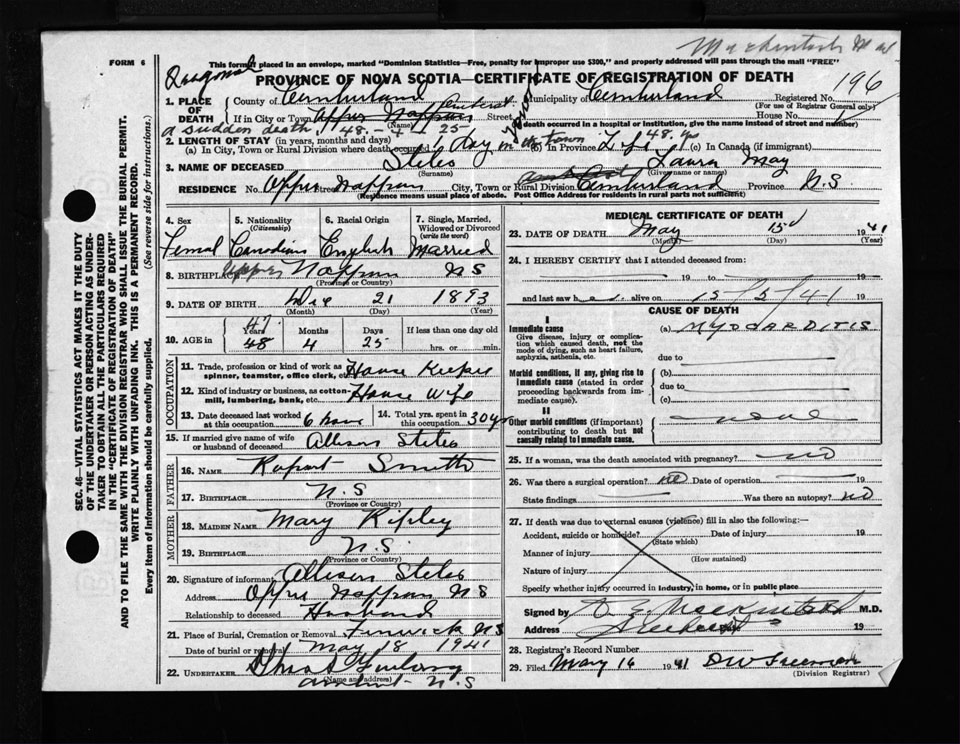 Mackintosh
FORM 6
This form if placed in an envelope, marked "Dominion Statistics—Free, penalty for improper use $300," and properly addressed will pass through the mail "FREE"
PROVINCE OF NOVA SCOTIA—CERTIFICATE OF REGISTRATION OF DEATH
196
1. PLACE OF DEATH
County of Cumberland Municipality of Cumberland Registered No.
(For use of Registrar General only)
If in City or Town Upper Nappan Amherst Street House No.
(Name) (If death occurred in a hospital or institution, give the name instead of street and number)
a sudden death, 48 - 4 25
2. LENGTH OF STAY (in years, months and days)
(a) In City, Town or Rural Division where death occurred 1 day in the town (b) In Province Life 48 yrs (c) In Canada (if immigrant)
3. NAME OF DECEASED Stiles Laura May
(Surname) (Given name or names)
RESIDENCE No. Upper Nappan Street City, Town or Rural Division Amherst Cumberland Province N.S.
(Residence means usual place of abode. Post Office Address for residents in rural parts not sufficient)
4. Sex 5. Nationality (Citizenship) 6. Racial Origin 7. Single, Married, Widowed or Divorced (write the word)
Femal Canedian English Married
8. BIRTHPLACE Upper Nappan N S
(Province or Country)
9. DATE OF BIRTH Dec 21 1893
(Month) (Day) (Year)
10. AGE in 47 Years 48 Months 4 Days 25 If less than one day old hrs. or min.
OCCUPATION
11. Trade, profession or kind of work as spinner, teamster, office clerk, etc. House Keeper
12. Kind of industry or business, as cotton-mill, lumbering, bank, etc. House Wife
13. Date deceased last worked at this occupation 14. Total yrs. spent in this occupation 30 yrs
15. If married give name of wife or husband of deceased Allison Stiles
FATHER
16. NAME Rupert Smith
17. BIRTHPLACE N.S
(Province or Country)
MOTHER
18. MAIDEN NAME Mary Ripley
19. BIRTHPLACE N.S.
(Province or Country)
20. Signature of informant Allison Stiles
Address Upper Nappan N S
Relationship to deceased Husband
21. Place of Burial, Cremation or Removal Fenwick N S
Date of burial or removal May 18 1941
22. UNDERTAKER Furlong
(Name and address)
Amherst N.S
MEDICAL CERTIFICATE OF DEATH
23. DATE OF DEATH May 15 1941
(Month) (Day) (Year)
24. I HEREBY CERTIFY that I attended deceased from:
19 to 19
and last saw her alive on 15/5/41 19
CAUSE OF DEATH
I
Immediate cause
Give disease, injury or complication which caused death, not the mode of dying, such as heart failure, asphyxia, asthenia, etc.
(a) MYOCARDITIS
due to
Morbid conditions, if any, giving rise to Immediate cause (stated in order proceeding backwards from immediate cause).
(b)
due to
(c)
II
Other morbid conditions (if important) contributing to death but not causally related to Immediate cause.
none
25. If a woman, was the death associated with pregnancy? no
26. Was there a surgical operation? no Date of operation 19
State findings Was there an autopsy? no
27. If death was due to external causes (violence) fill in also the following:—
Accident, suicide or homicide? Date of injury 19
(State which)
Manner of injury
(How sustained)
Nature of injury
Specify whether injury occurred in industry, in home, or in public place
Signed by Mackintosh M.D.
Address Amherst 19
28. Registrar's Record Number
29. Filed May 16 1941 D W Freeman
(Division Registrar)
SEC. 46—VITAL STATISTICS ACT MAKES IT THE DUTY
OF THE UNDERTAKER OR PERSON ACTING AS UNDER-
TAKER TO OBTAIN ALL THE PARTICULARS REQUIRED
IN THE "CERTIFICATE OF REGISTRATION OF DEATH"
AND TO FILE THE SAME WITH THE DIVISION REGISTRAR WHO SHALL ISSUE THE BURIAL PERMIT.
WRITE PLAINLY WITH UNFADING INK. THIS IS A PERMANENT RECORD.
Every item of Information should be carefully supplied. (See reverse side for instructions.)